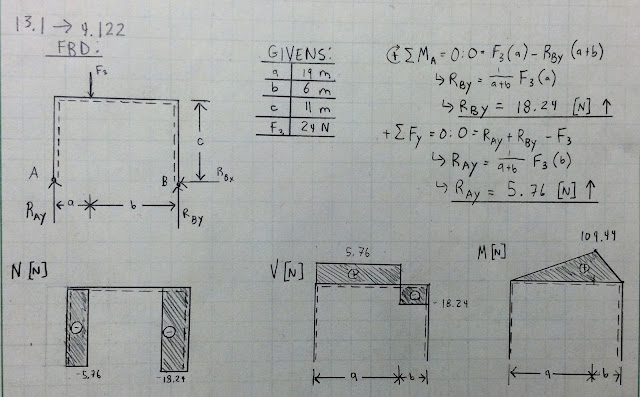 13.1 → 9.122
FBD:
F₃
A
B
c
R_BX
R_AY
a
b
R_BY
GIVENS:
a 19 m
b 6 m
c 11 m
F₃ 24 N
+ ΣM_A = 0: 0 = F₃(a) - R_BY (a+b)
↳ R_BY = 1/(a+b) F₃(a)
↳ R_BY = 18.24 [N] ↑
+ ΣF_Y = 0: 0 = R_AY + R_BY - F₃
↳ R_AY = 1/(a+b) F₃(b)
↳ R_AY = 5.76 [N] ↑
N [N]
-
-
-5.76
-18.24
V [N]
5.76
+
-
-18.24
a
b
M [N]
109.44
+
a
b